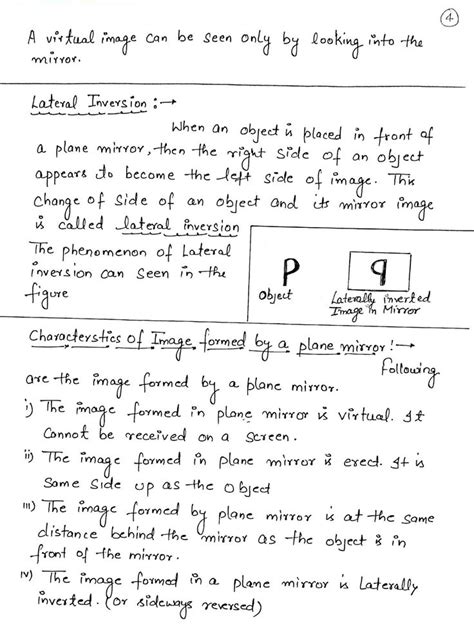 4
A virtual image can be seen only by looking into the
mirror.
Lateral Inversion :→
When an object is placed in front of
a plane mirror, then the right side of an object
appears to become the left side of image. This
change of side of an object and its mirror image
is called lateral inversion
The phenomenon of Lateral
inversion can seen in the
figure
P
q
Object
Laterally inverted
Image in Mirror
Characterstics of Image formed by a plane mirror! →
Following
are the image formed by a plane mirror.
i) The image formed in plane mirror is virtual. It
Cannot be received on a screen.
ii) The image formed in plane mirror is erect. It is
Same Side up as the Object
iii) The image formed by plane mirror is at the same
distance behind the mirror as the object is in
front of the mirror.
iv) The image formed in a plane mirror is Laterally
inverted. (or sideways reversed)